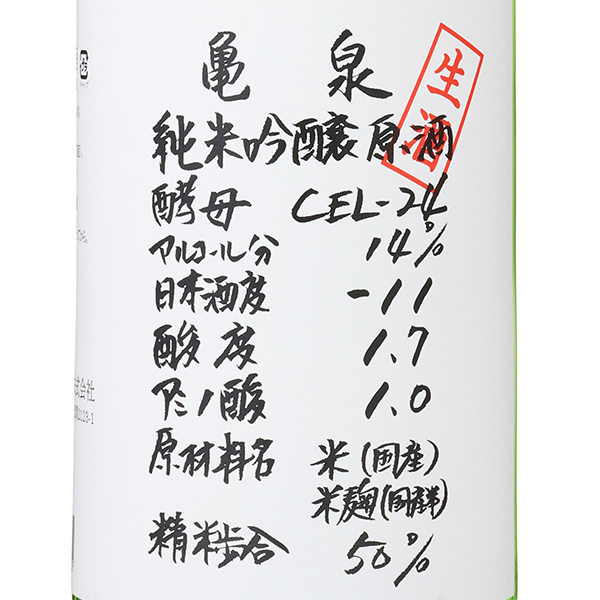 亀泉
生酒
純米吟醸原酒
酵母 CEL-24
アルコール分 14%
日本酒度 -11
酸度 1.7
アミノ酸 1.0
原材料名 米(国産)
米麹(国産米)
精米歩合 50%
式会社
1123-1